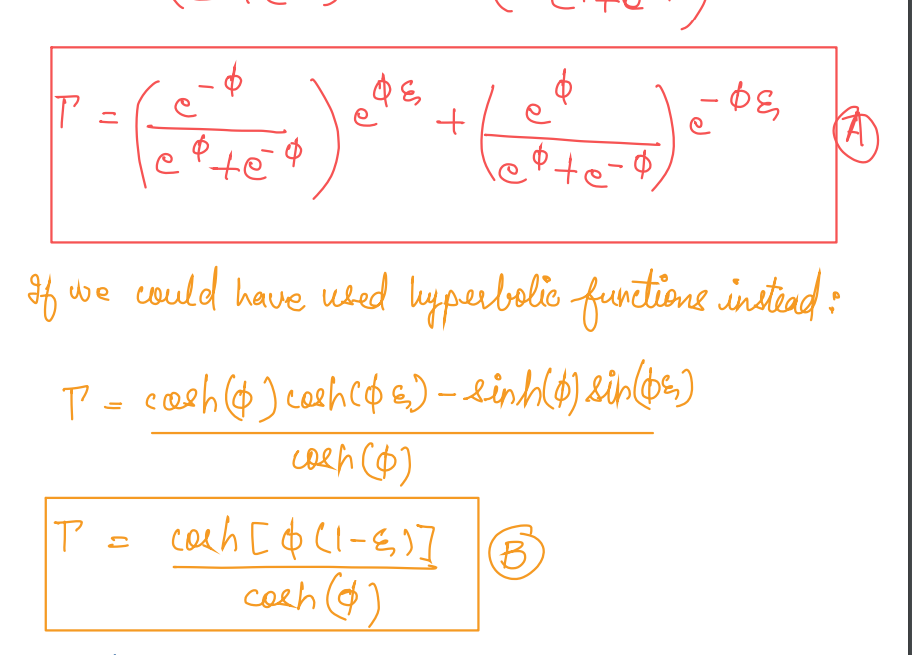 Γ = (e^{-ϕ} / (e^{ϕ}+e^{-ϕ})) e^{ϕξ} + (e^{ϕ} / (e^{ϕ}+e^{-ϕ})) e^{-ϕξ} (A)
If we could have used hyperbolic functions instead:
Γ = (cosh(ϕ) cosh(ϕξ) - sinh(ϕ) sin(ϕξ)) / cosh(ϕ)
Γ = cosh[ϕ(1-ξ)] / cosh(ϕ) (B)